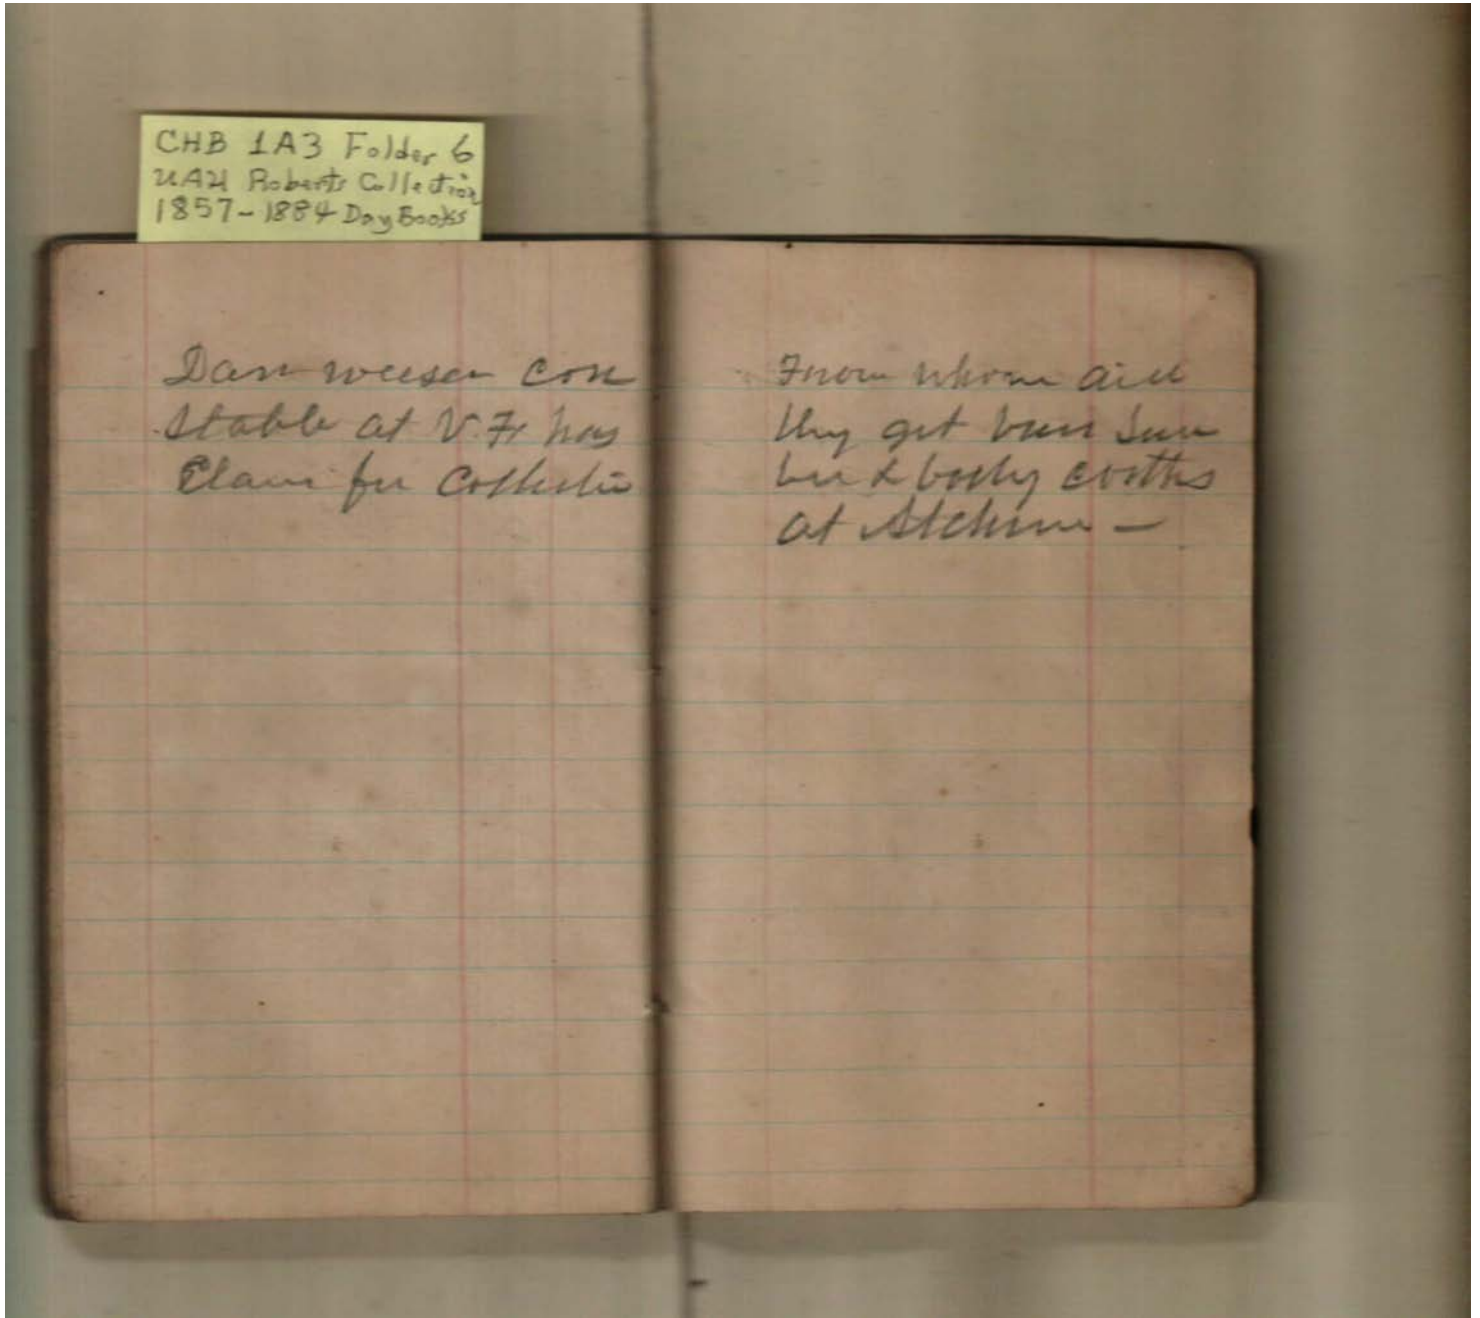 CHB 1A3 Folder 6
UAH Roberts Collection
1857-1884 Day Books
Dan con
stable at V. Fr has
Claim for Collectin
From whom did
they get
& cloths
at —